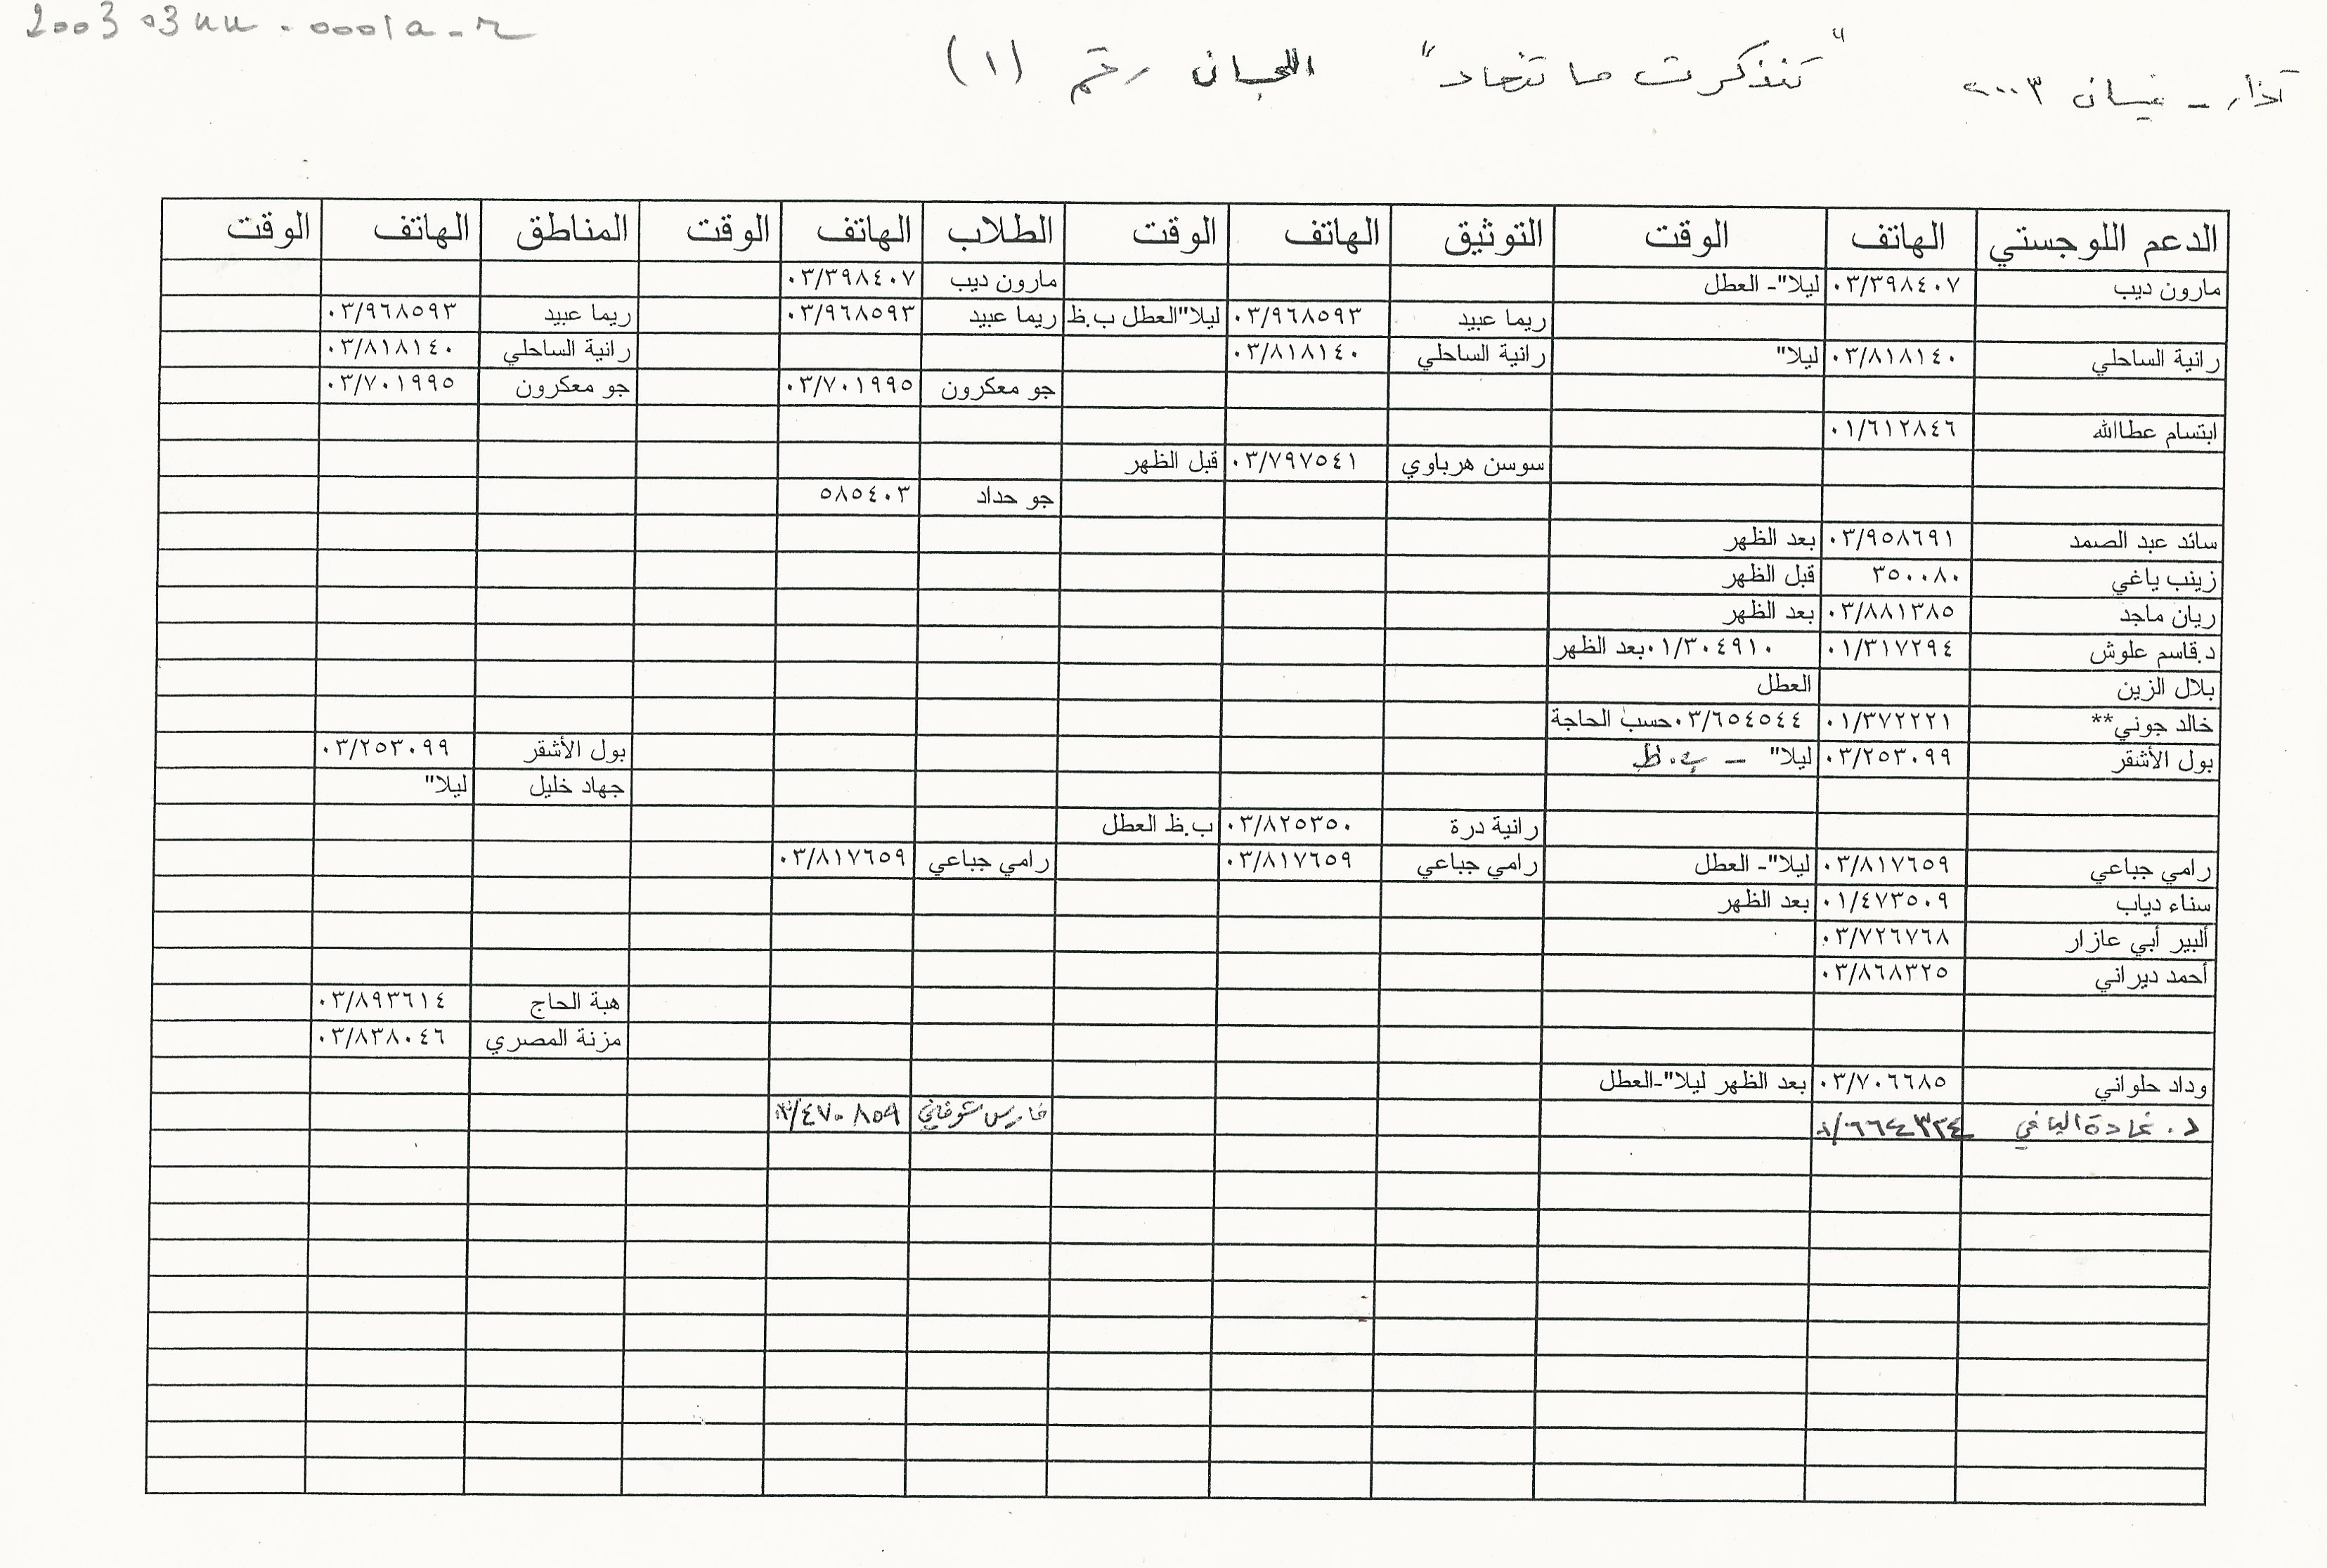 2003 03 uu - 0001a - r
آذار - نيسان ٢٠٠٣ "تنذكرت ما تنعاد" اللجان رقم (١)
الدعم اللوجستي الهاتف الوقت التوثيق الهاتف الوقت الطلاب الهاتف الوقت المناطق الهاتف الوقت
مارون ديب ٠٣/٣٩٨٤٠٧ ليلا"- العطل مارون ديب ٠٣/٣٩٨٤٠٧
ريما عبيد ٠٣/٩٦٨٥٩٣ ليلا"العطل ب.ظ ريما عبيد ٠٣/٩٦٨٥٩٣ ريما عبيد ٠٣/٩٦٨٥٩٣
رانية الساحلي ٠٣/٨١٨١٤٠ ليلا" رانية الساحلي ٠٣/٨١٨١٤٠ رانية الساحلي ٠٣/٨١٨١٤٠
جو معكرون ٠٣/٧٠١٩٩٥ جو معكرون ٠٣/٧٠١٩٩٥
ابتسام عطاالله ٠١/٦١٢٨٤٦
سوسن هرباوي ٠٣/٧٩٧٥٤١ قبل الظهر
جو حداد ٥٨٥٤٠٣
سائد عبد الصمد ٠٣/٩٥٨٦٩١ بعد الظهر
زينب ياغي ٣٥٠٠٨٠ قبل الظهر
ريان ماجد ٠٣/٨٨١٣٨٥ بعد الظهر
د.قاسم علوش ٠١/٣١٧٢٩٤ ٠١/٣٠٤٩١٠ بعد الظهر
بلال الزين العطل
خالد جوني** ٠١/٣٧٢٢٢١ ٠٣/٦٥٤٥٤٤ حسب الحاجة
بول الأشقر ٠٣/٢٥٣٠٩٩ ليلا" - ب.ظ بول الأشقر ٠٣/٢٥٣٠٩٩
جهاد خليل ليلا"
رانية درة ٠٣/٨٢٥٣٥٠ ب.ظ العطل
رامي جباعي ٠٣/٨١٧٦٥٩ ليلا"- العطل رامي جباعي ٠٣/٨١٧٦٥٩ رامي جباعي ٠٣/٨١٧٦٥٩
سناء دياب ٠١/٤٧٣٥٠٩ بعد الظهر
ألبير أبي عازار ٠٣/٧٢٦٧٦٨
أحمد ديراني ٠٣/٨٦٨٣٢٥
هبة الحاج ٠٣/٨٩٣٦١٤
مزنة المصري ٠٣/٨٣٨٠٤٦
وداد حلواني ٠٣/٧٠٦٦٨٥ بعد الظهر ليلا"-العطل
د. غادة اليافي ٠١/٦٦٤٣٢٤ فارس شوفاني ٠٣/٤٧٠٨٥٩